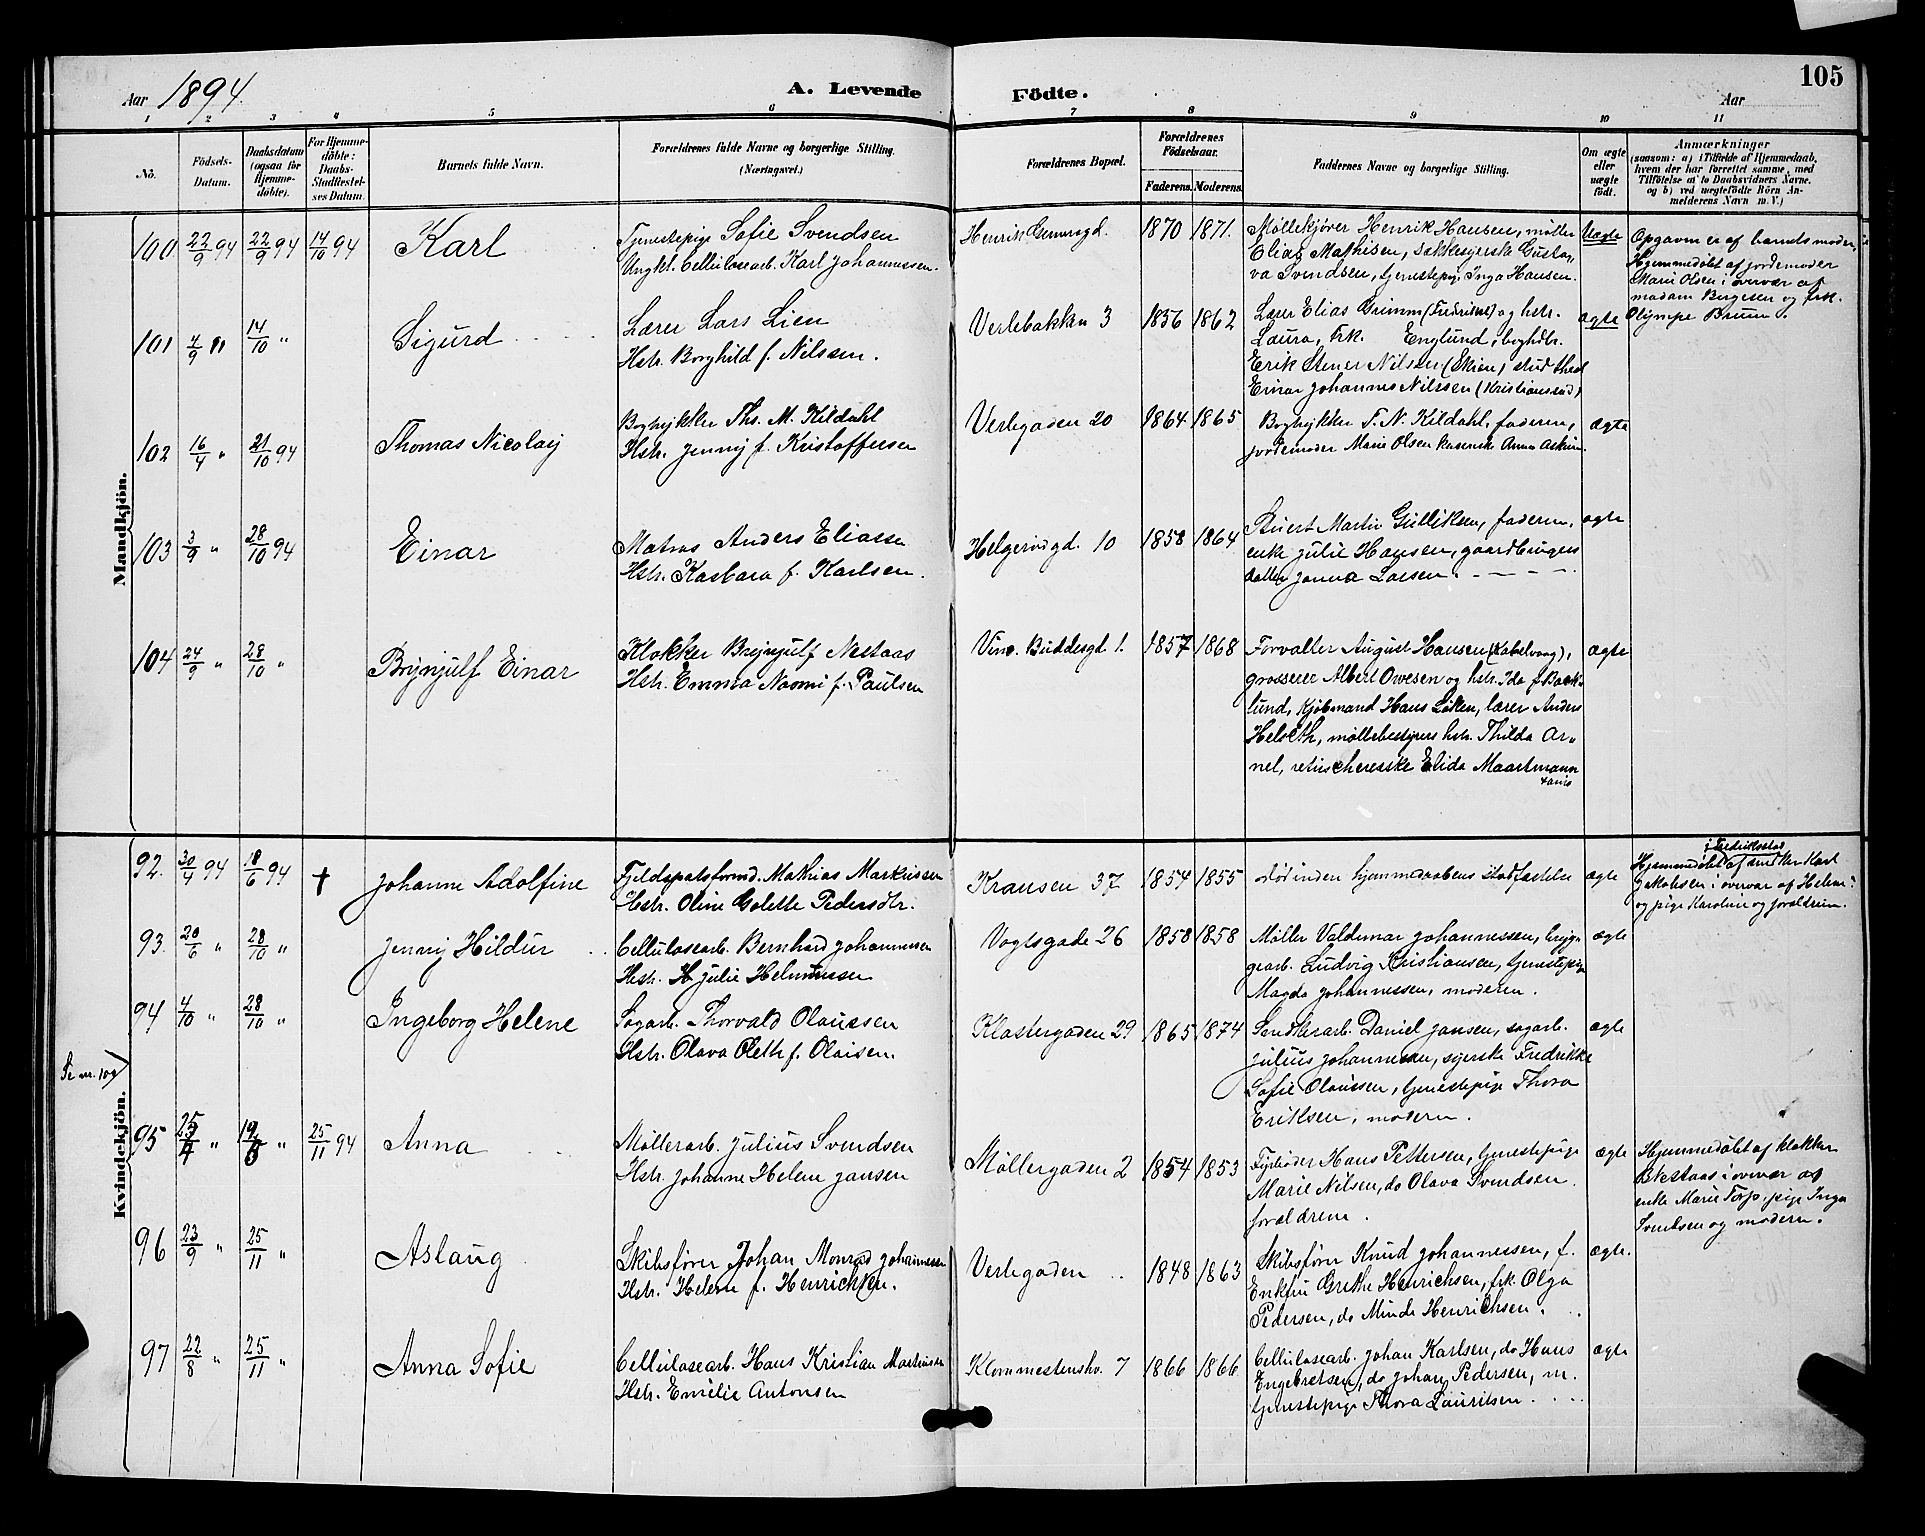 Aar 1894.
A. Levende Födte.
Aar
105
1 2 3 4 5 6 7 8 9 10 11
No.
Födsels-Datum.
Daabsdatum (ogsaa for Hjemmedöbte).
For Hjemmedöbte: Daabs-Stadfæstelses Datum.
Barnets fulde Navn.
Forældrenes fulde Navne og borgerlige Stilling. (Næringsvei.)
Forældrenes Bopæl.
Forældrenes Födselsaar.
Faderens. Moderens.
Faddernes Navne og borgerlige Stilling.
Om ægte eller uægte födt.
Anmærkninger
(saasom: a) i Tilfælde af Hjemmedaab, hvem der har forrettet samme, med Tilföielse af to Daabsvidners Navne, og b) ved uægtefödte Börn Anmelderens Navn m. V.)
Mandkjön.
100 22/9 94 22/9 94 14/10 94 Karl
Tjenestepige Sofie Svendsen
Ungkl. Cellulosearb. Karl Johannessen.
1870 1871.
Møllekjører Henrik Hansen, møller
Elias Mathisen, sækkesyerske Gusta-
va Svendsen, tjenestepig. Inga Hansen.
Uægte
Opgaven er af barnets moder,
Hjemmedøbt af jordemoder
Marie Olsen i overvær af
madam Børgesen og frk.
Olympe Bruun.
101 4/9 " 14/10 " Sigurd
Lærer Lars Lien
Hstr. Borghild f. Nilssen.
Verlebakken 3 1856 1862
Lærer Elias Grimm (Fredrikst) og hstr.
Laura, Frk. Englund, boghdlr.
Erik Stener Nilssen (Skien) stud theol
Einar Johannes Nilssen (Kristianssand)
ægte
102 16/4 " 21/10 94 Thomas Nicolay
Bogtykker Ths. M. Kildahl
Hstr. Jenny f. Kristoffersen
Verlegaden 20 1864 1865
Bogtykker T. N. Kildahl, faderen,
jordemoder Marie Olsen Anna
ægte
103 3/9 " 28/10 94 Einar
Matros Anders Eliassen
Hstr. Barbara f. Karlsen.
Helgerødgd. 10 1858 1864
Stuert Martin Gulliksen, faderen,
enke Julie Hansen, gaardbrugers
datter Janna Larsen.
ægte
104 24/9 " 28/10 " Brynjulf Einar
Klokker Brynjulf Nestaas
Hstr. Emma Naomi f. Paulsen
Vinc. Buddesgd 1. 1857 1868
Forvalter August Hansen (Kabelvaag),
grosserer Albert Owesen og hstr. Ida f. Back-
lund, Kjøbmand Hans Løken, lærer Anders
Helseth, møllebestyrers hstr. Thilda Ar-
nel, retucheresske Elida Maartmann
ægte
Kvindekjön.
92. 30/4 94 18/6 94 † Johanne Adolfine
Fjeldspatsformd. Mathias Markussen
Hstr. Oline Golette Pedersdtr.
Kransen 37 1854 1855
død inden hjemmedaabens stadfæstelse
ægte
i Fredriksstad
Hjemmedøbt af snedker Karl
Jakobsen i overvær af Helene
og pige Karoline og forældrene.
93. 20/6 " 28/10 " Jenny Hildur
Cellulosearb. Bernhard Johannessen
Hstr. H Julie Helmersen
Vogtsgade 26 1858 1858
Møller Valdemar Johannessen, brygg-
gearb. Ludvig Kristiansen, tjenestepige
Magda Johannessen, moderen.
ægte
94 4/10 " 28/10 " Ingeborg Helene
Sagarb. Thorvald Olaussen
Hstr. Olava Oleth f. Olaisen.
Klostergaden 29 1865 1874
Snedkerarb. Daniel Jansen, sagarb.
Julius Johannessen, syerske Fredrikke
Sofie Olaussen, tjenestepige Thora
Eriksen, moderen.
ægte
Se nr. 109
95 " " 25/11 94 Anna
Møllerarb. Julius Svendsen
Hstr. Johanne Helene Jansen
Møllergaden 2 1854 1853
Fyrbøder Hans Pettersen, tjenestepige
Marie Nilsen, do Olava Svendsen.
forældrene.
ægte
Hjemmedøbt af klokker
Nestaas i overvær af
enke Marie Torp, pige Inga
Svendsen og moderen.
96 23/9 " 25/11 " Aslaug
Skibsfører Johan Monrad Johannessen
Hstr. Helene f. Henrichsen.
Verlegaden 1848 1863
Skibsfører Knud Johannessen, f.
Enkfru Grethe Henrichsen, frk. Olga
Pedersen, do Minda Henrichsen.
ægte.
97 22/8 " 25/11 " Anna Sofie
Cellulosearb. Hans Kristian Martinsen
Hstr. Emelie Antonsen
7 1866 1866
Cellulosearb. Johan Karlsen, do Hans
Engebretsen, do Johan Pedersen, m.
tjenestepige Thora Lauritsen.
ægte